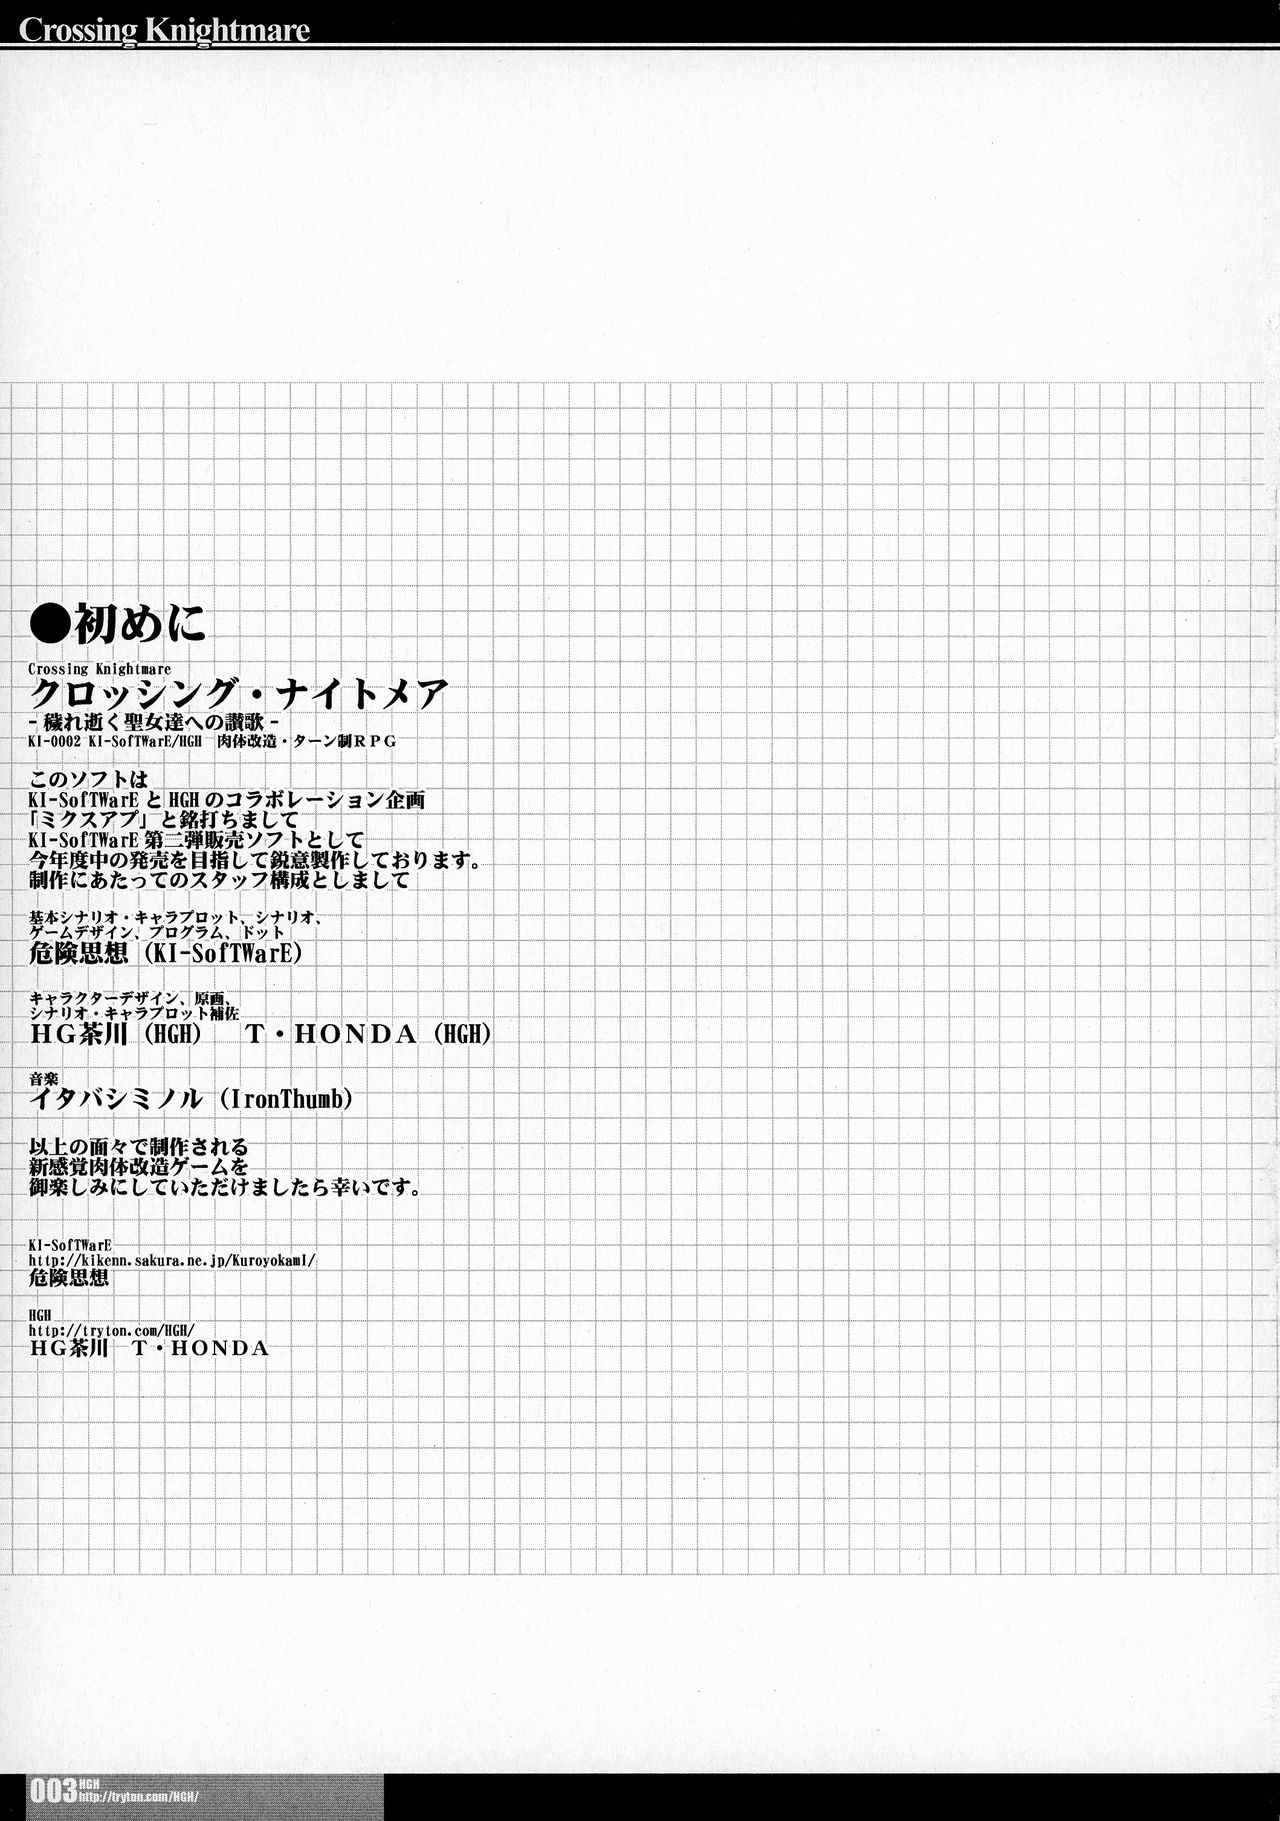 Crossing Knightmare
●初めに
Crossing Knightmare
クロッシング・ナイトメア
- 穢れ逝く聖女達への讃歌 -
KI-0002 KI-SofTWarE/HGH　肉体改造・ターン制ＲＰＧ
このソフトは
KI-SofTWarE と HGH のコラボレーション企画
「ミクスアプ」と銘打ちまして
KI-SofTWarE 第二弾販売ソフトとして
今年度中の発売を目指して鋭意製作しております。
制作にあたってのスタッフ構成としまして
基本シナリオ・キャラプロット、シナリオ、
ゲームデザイン、プログラム、ドット
危険思想（KI-SofTWarE）
キャラクターデザイン、原画、
シナリオ・キャラプロット補佐
ＨＧ茶川（HGH）　Ｔ・ＨＯＮＤＡ（HGH）
音楽
イタバシミノル（IronThumb）
以上の面々で制作される
新感覚肉体改造ゲームを
御楽しみにしていただけましたら幸いです。
KI-SofTWarE
http://kikenn.sakura.ne.jp/KuroyokamI/
危険思想
HGH
http://tryton.com/HGH/
ＨＧ茶川　Ｔ・ＨＯＮＤＡ
003 HGH
http://tryton.com/HGH/